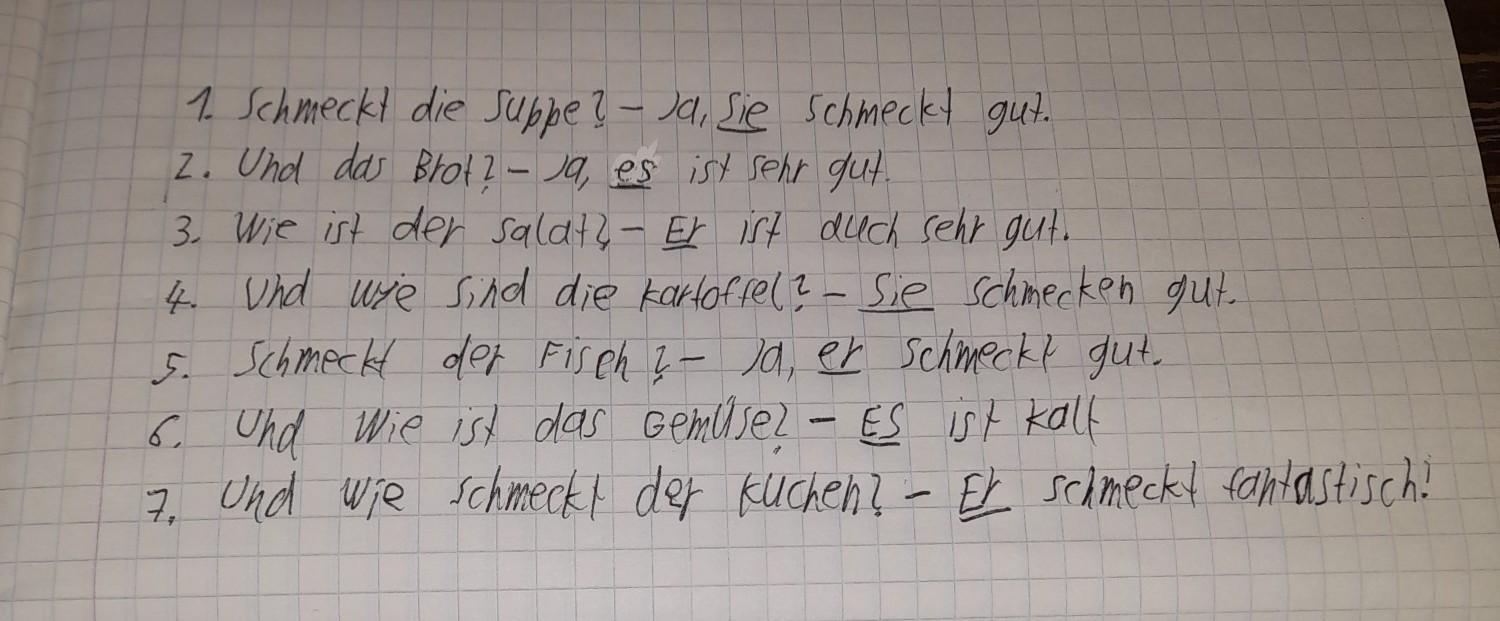 1. Schmeckt die Suppe? – Ja, Sie schmeckt gut.
2. Und das Brot? – Ja, es ist sehr gut.
3. Wie ist der Salat? – Er ist auch sehr gut.
4. Und wie sind die Kartoffel? – Sie schmecken gut.
5. Schmeckt der Fisch? – Ja, er schmeckt gut.
6. Und wie ist das Gemüse? – Es ist kalt
7. Und wie schmeckt der Kuchen? – Er schmeckt fantastisch!